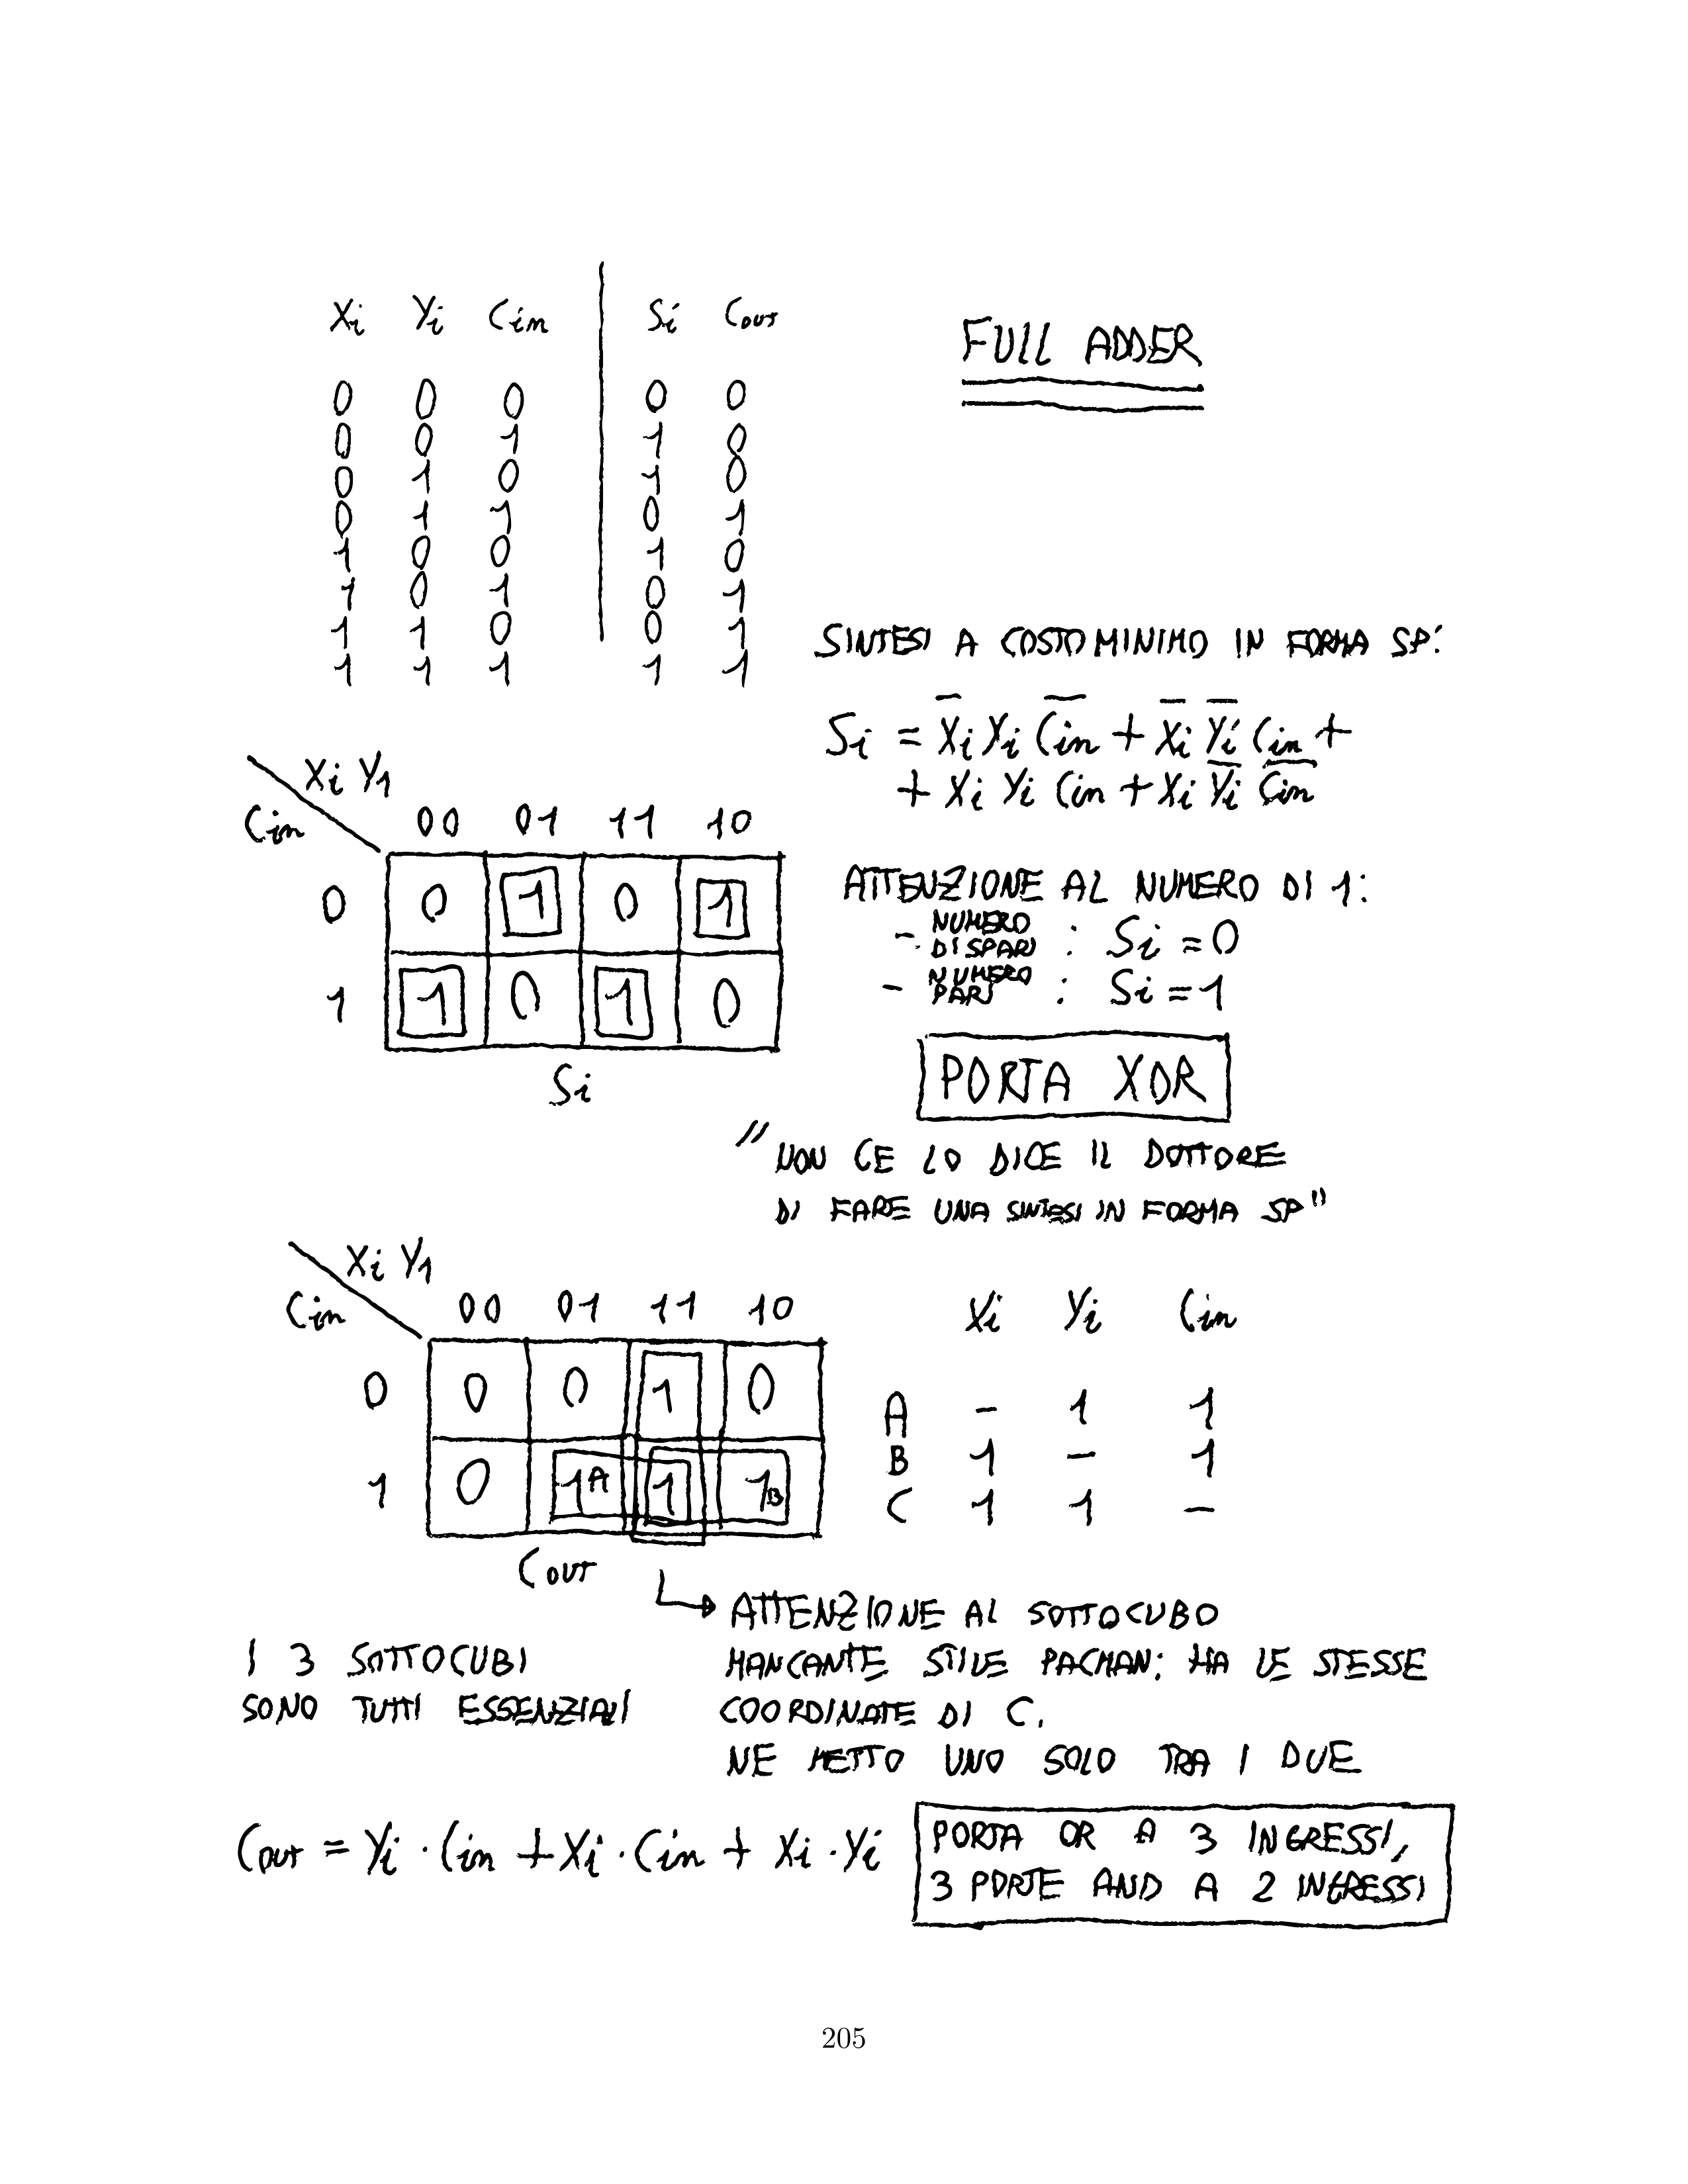 Xi Yi Cin Si Cout
FULL ADDER
0 0 0 0 0
0 0 1 1 0
0 1 0 1 0
0 1 1 0 1
1 0 0 1 0
1 0 1 0 1
1 1 0 0 1
1 1 1 1 1
SINTESI A COSTO MINIMO IN FORMA SP:
Si = X̅i Yi C̅i̅n̅ + X̅i Y̅i Cin +
+ Xi Yi Cin + Xi Y̅i C̅i̅n̅
Xi Y1
Cin 00 01 11 10
0 0 1 0 1
1 1 0 1 0
Si
ATTENZIONE AL NUMERO DI 1:
- NUMERO DISPARI : Si = 0
- NUMERO PARI : Si = 1
PORTA XOR
"NON CE LO DICE IL DOTTORE
DI FARE UNA SINTESI IN FORMA SP"
Xi Y1
Cin 00 01 11 10
0 0 0 1 0
1 0 1A 1 1B
Cout
Xi Yi Cin
A - 1 1
B 1 - 1
C 1 1 -
I 3 SOTTOCUBI
SONO TUTTI ESSENZIALI
ATTENZIONE AL SOTTOCUBO
MANCANTE STILE PACMAN: HA LE STESSE
COORDINATE DI C.
NE METTO UNO SOLO TRA I DUE
Cout = Yi · Cin + Xi · Cin + Xi · Yi
PORTA OR A 3 INGRESSI,
3 PORTE AND A 2 INGRESSI
205